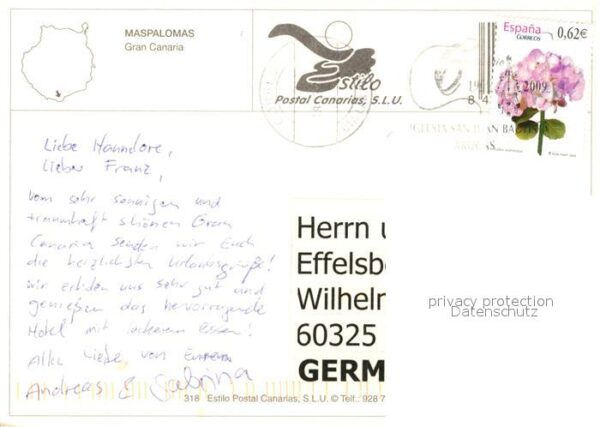 MASPALOMAS
Gran Canaria
Estilo
Postal Canarias, S.L.U.
España
CORREOS
0,62€
2009
IGLESIA SAN JUAN BAUTISTA
ARUCAS
Liebe Hanndore,
Lieber Franz,
vom sehr sonnigen und
traumhaft schönen Gran
Canaria senden wir Euch
die herzlichsten Urlaubsgrüße!
Wir erholen uns sehr gut und
genießen das hervorragende
Hotel mit leckerem Essen!
Alles Liebe von Euren
Andreas & Sabrina
Herrn u
Effelsbe
Wilhelm
60325
GERM
privacy protection
Datenschutz
318 Estilo Postal Canarias, S.L.U. © Telf.: 928 7